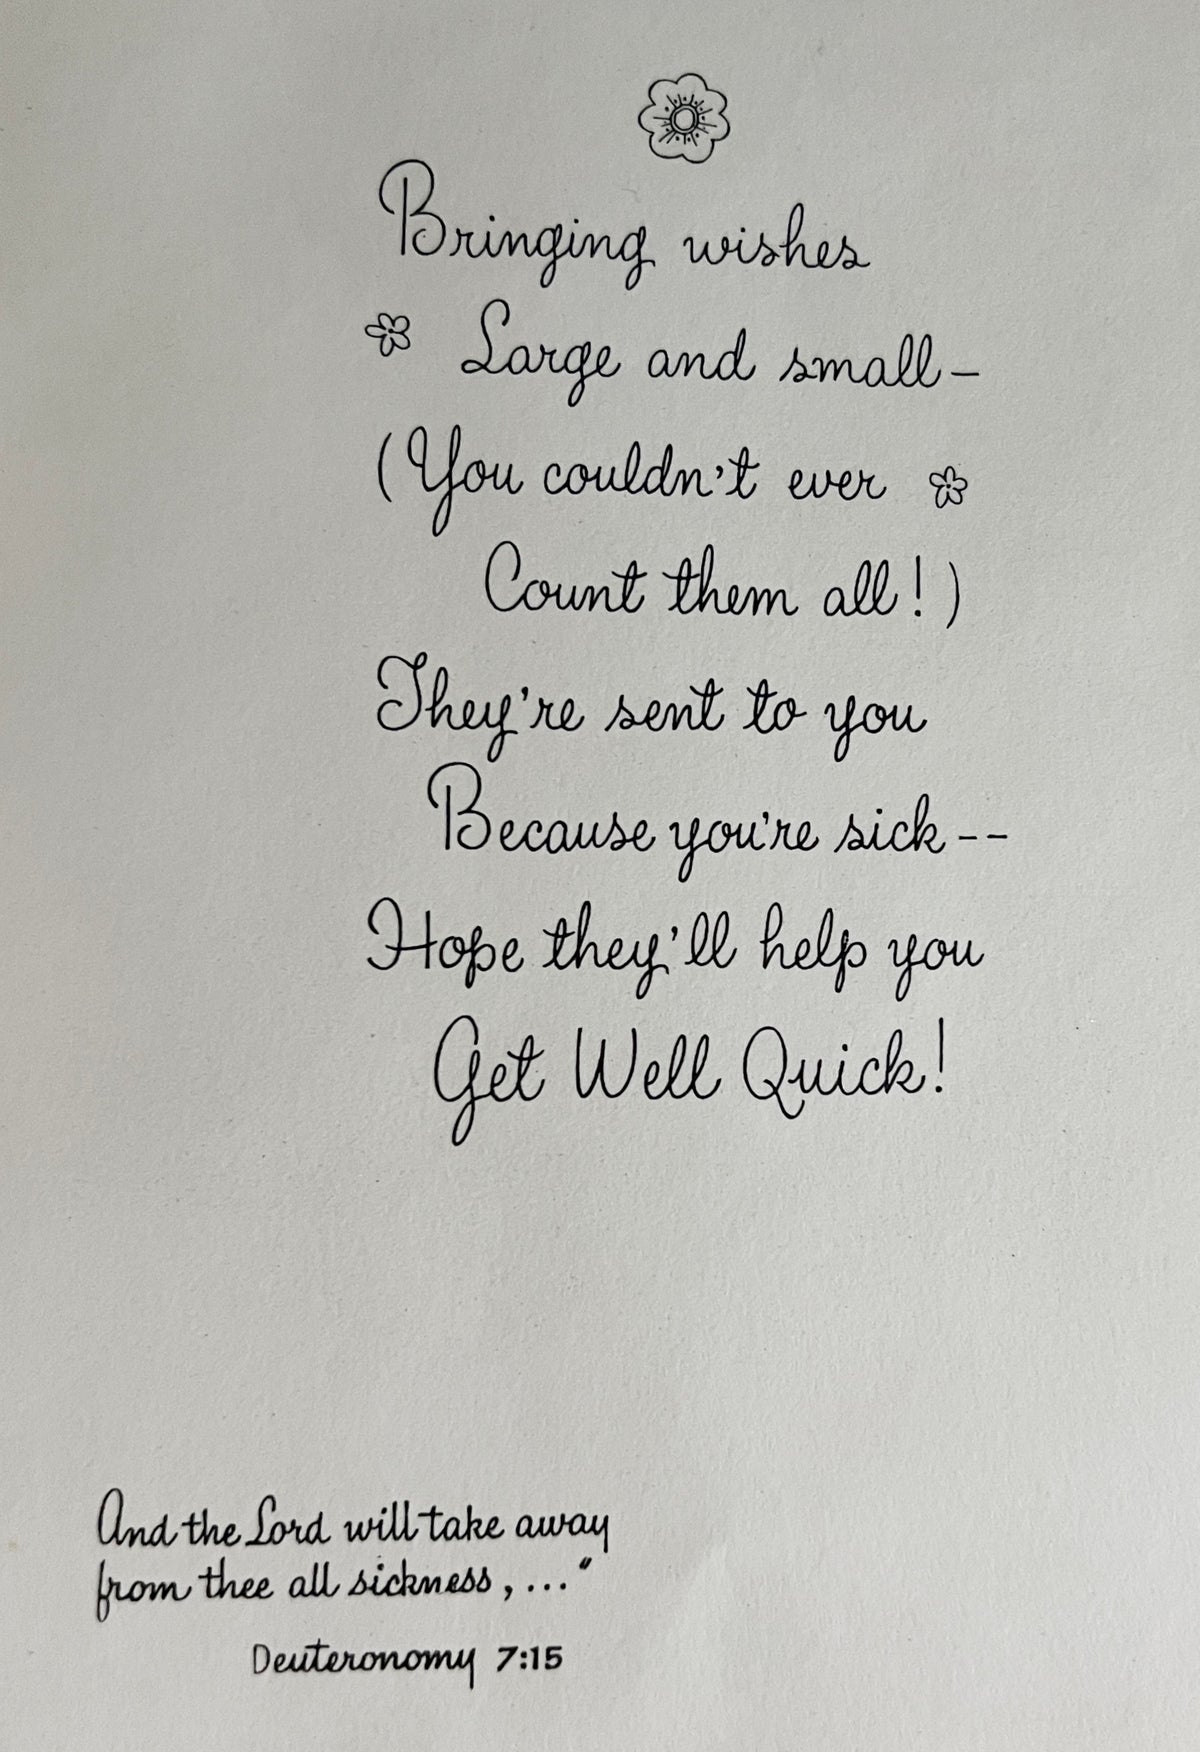 Bringing wishes
Large and small-
(You couldn't ever
Count them all!)
They're sent to you
Because you're sick--
Hope they'll help you
Get Well Quick!
And the Lord will take away
from thee all sickness,..."
Deuteronomy 7:15